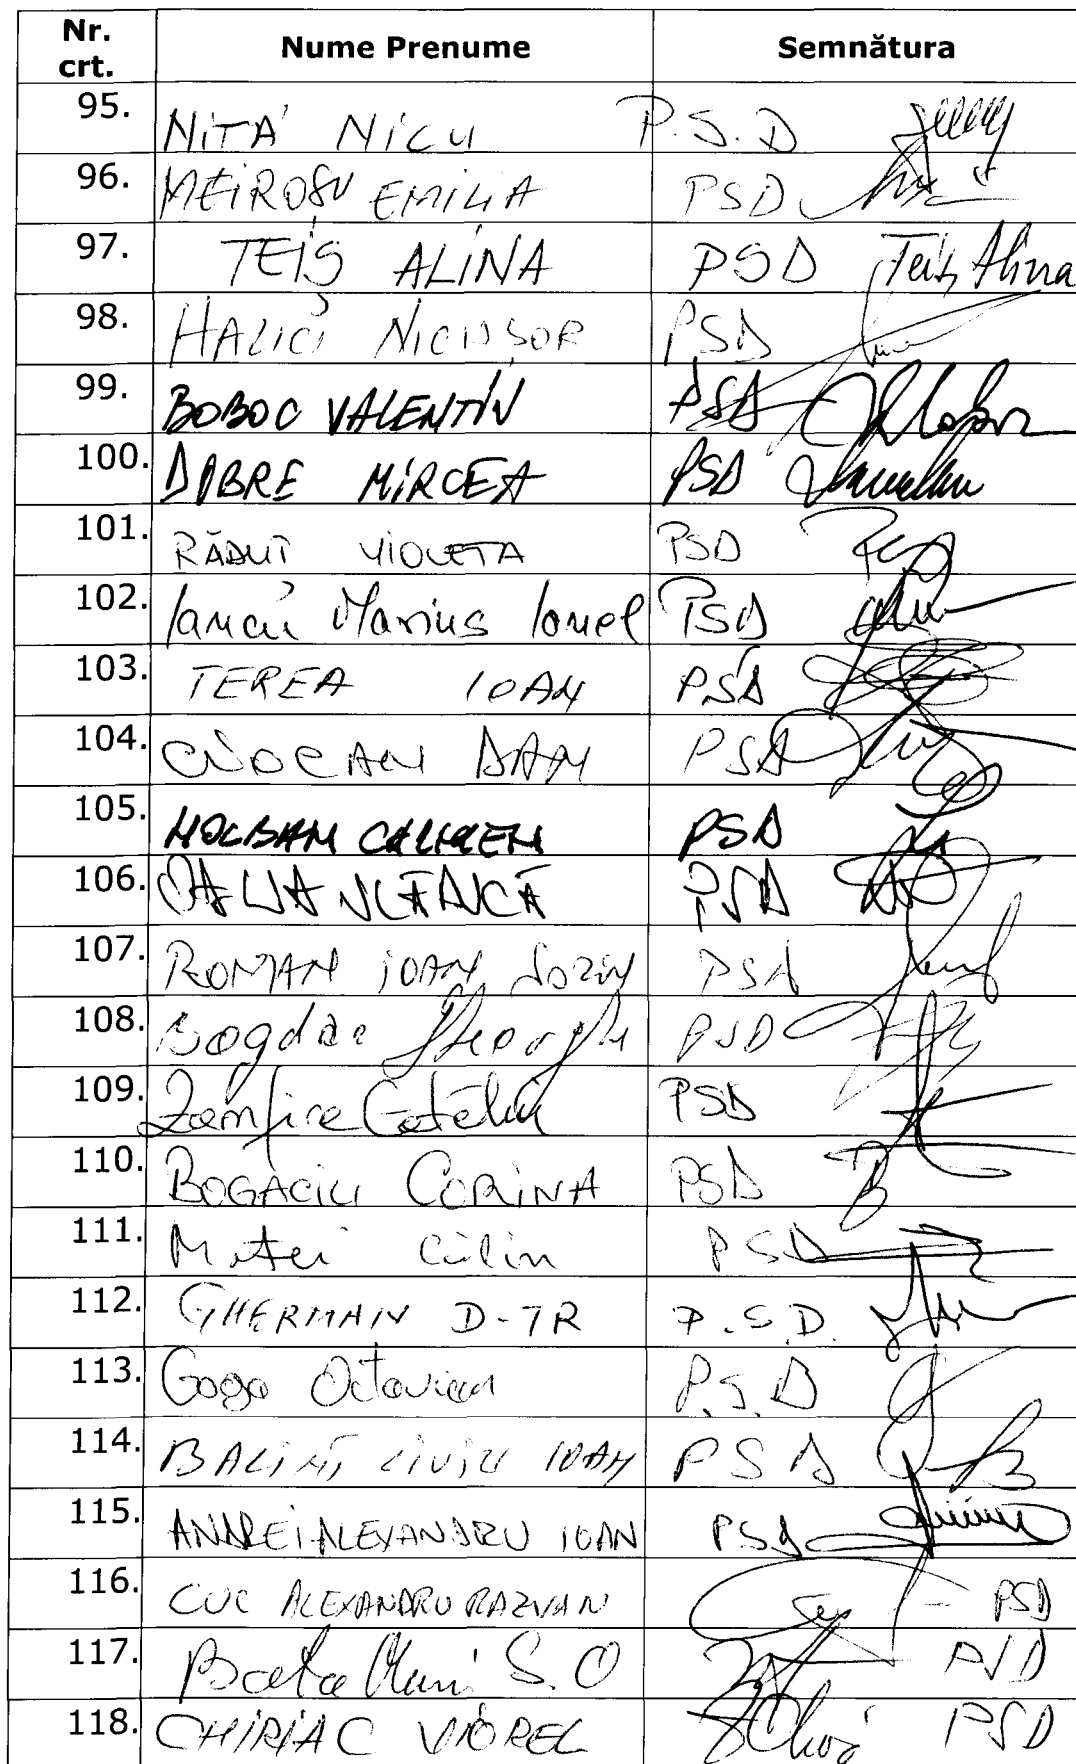 Nr. crt. Nume Prenume Semnătura
95. NIŢĂ NICU P.S.D
96. MEIROŞU EMILIA PSD
97. TEIŞ ALINA PSD Teiş Alina
98. HALICI NICUŞOR PSD
99. BOBOC VALENTIN PSD
100. DOBRE MIRCEA PSD
101. RĂDUŢ VIOLETA PSD
102. Iancu Marius Ionel PSD
103. TEREA IOAN PSD
104. CIOCAN DAN PSD
105. HOLBAN CARMEN PSD
106. OALIA VLĂDUCĂ PSD
107. ROMAN IOAN SORIN PSD
108. Bogdan Gheorghe PSD
109. Zamfira Cătălin PSD
110. BOGACIU CORINA PSD
111. Matei Călin PSD
112. GHERMAN D-TR P.S.D.
113. Gogo Octavian P.S.D
114. BALINT LIVIU IOAN PSD
115. ANDREI ALEXANDRU IOAN PSD
116. CUC ALEXANDRU RAZVAN - PSD
117. S.O PSD
118. CHIRIAC VIOREL PSD